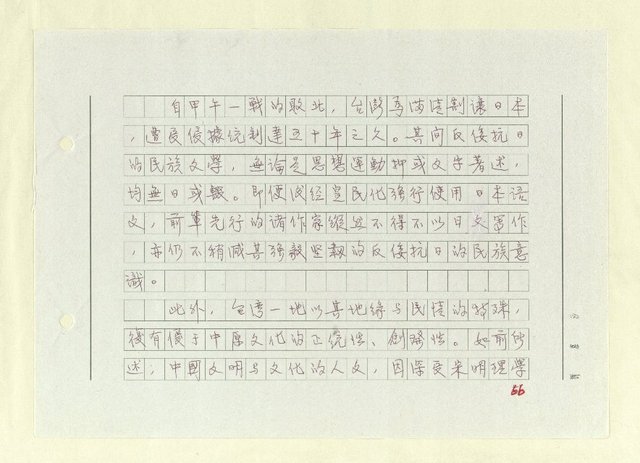 自甲午一戰的敗北，台灣爲滿清割讓日本
，遭受侵據統制達五十年之久。其间反侵抗日
的民族文學，無論是思想運動抑或文字著述，
均無日或輟。即便戌经皇民化強行使用日本语
文，前輩先行的诸作家縱然不得不以日文写作
，亦仍不稍减其強毅坚韌的反侵抗日的民族意
識。
此外，台湾一地以其地缘与民情的特殊，
復有優于中原文化的正统性、創發性。如前所
述，中國文明与文化的人文，因深受宋明理學
66